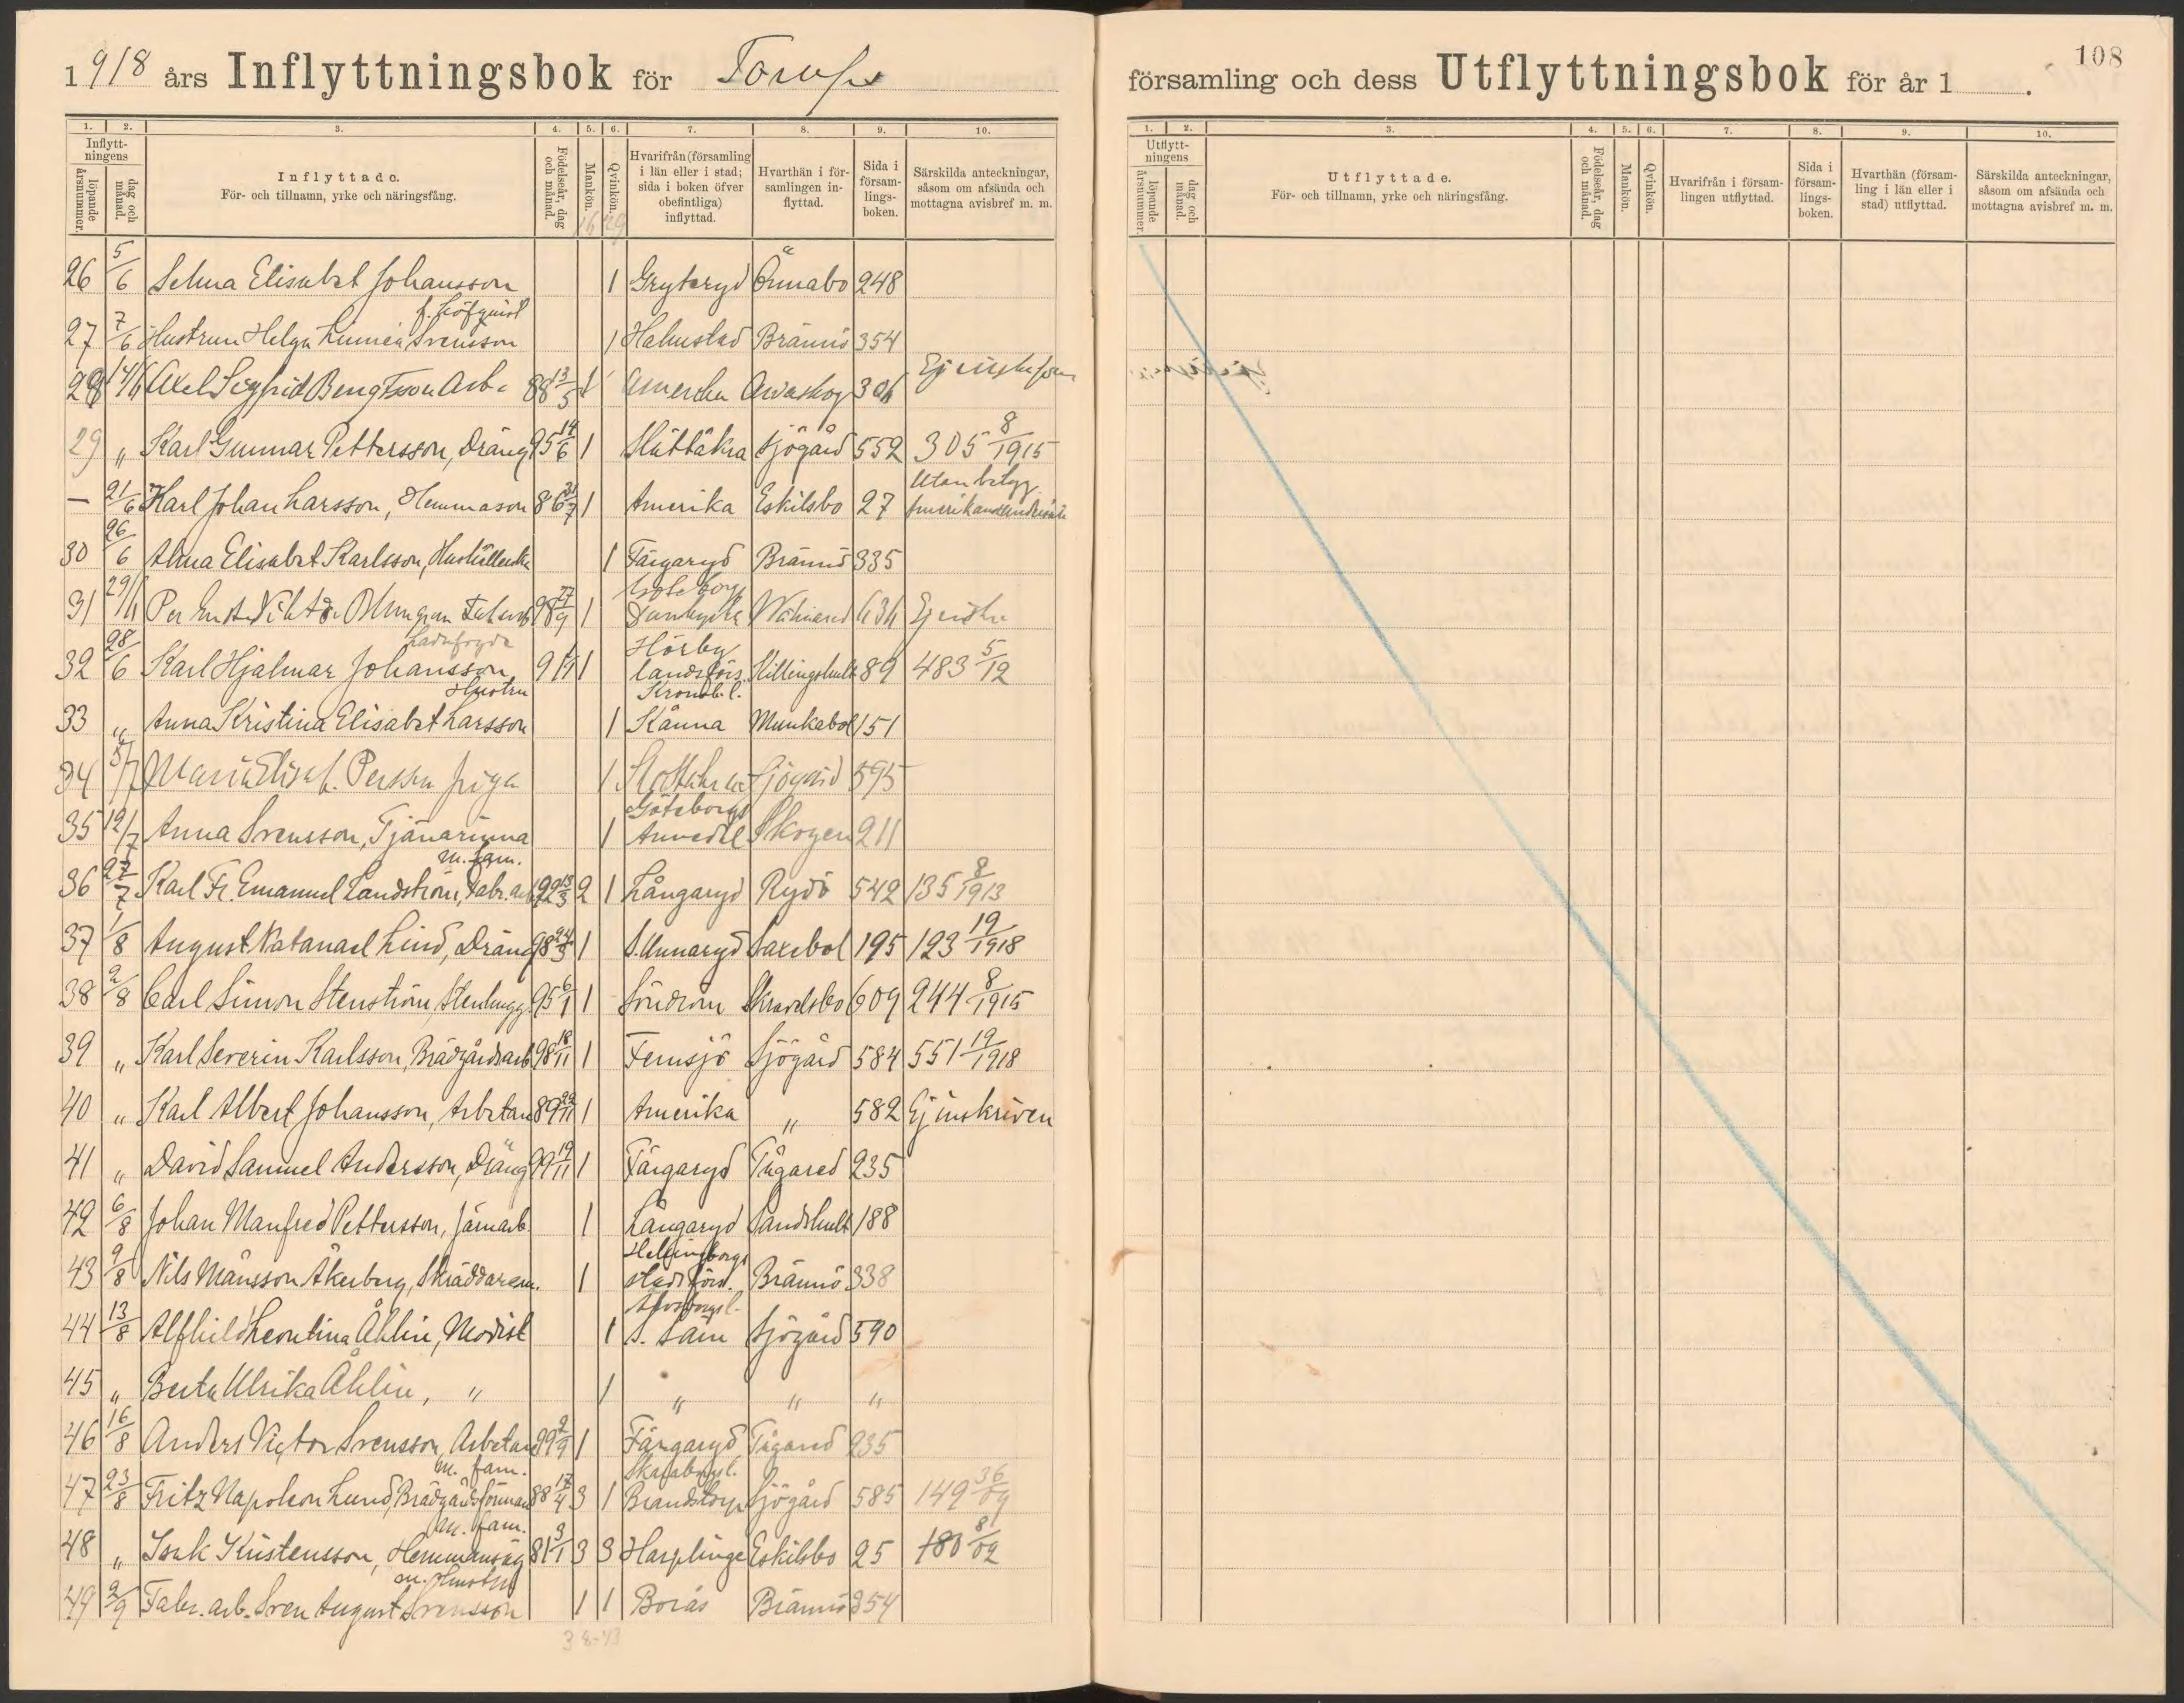 1918 års Inflyttningsbok för Torups
församling och dess Utflyttningsbok för år 1 .
108
1. 2. 3. 4. 5. 6. 7. 8. 9. 10.
Inflyttningens
löpande årsnummer.
dag och månad.
Inflyttade.
För- och tillnamn, yrke och näringsfång.
Födelseår, dag och månad.
Mankön.
Qvinkön.
Hvarifrån (församling i län eller i stad; sida i boken öfver obefintliga) inflyttad.
Hvarthän i församlingen inflyttad.
Sida i församlingsboken.
Särskilda anteckningar, såsom om afsända och mottagna avisbref m. m.
26 5/6 Selma Elisabet Johansson 1 Gryteryd Önnabo 248
f. Löfquist
27 7/6 Hustrun Helga Linnéa Svensson 1 Halmstad Brännö 354
28 14/6 Axel Sigfrid Bengtsson Arb. 88 13/5 1 Amerika 306 Ej
29 " Karl Gunnar Pettersson, Dräng 95 14/6 1 Slättåkra Sjögård 552 305 8/1915
Utan betyg
— 21/6 Karl Johan Larsson, Hemmason 86 1 Amerika Eskilsbo 27
30 26/6 Alma Elisabet Karlsson, Hushållerska 1 Färgaryd Brännö 335
Göteborg
31 29/6 Per 98 27/9 1 Ej
Ladufogde
Hörby
32 28/6 Karl Hjalmar Johansson 91 1 landsförs. Killingshult 89 483 5/12
Hustru
Kronob. l.
33 " Anna Kristina Elisabet Larsson 1 Kånna Munkabol 151
34 Maria Elisab. Persson piga 1 Sjögård 595
Göteborgs
35 12/7 Anna Svensson, Tjänarinna 1 Annedal Skogen 211
m. fam.
36 27/7 Karl Fr. Emanuel Landström, Fabr. arb. 92 13/3 2 1 Långaryd Rydö 542 135 8/1913
37 1/8 August Natanael Lind, Dräng 98 1 S. Unnaryd Saxebol 195 123 19/1918
38 2/8 Carl Simon Stenström, Stenhugg. 95 6/1 1 Söndrum 609 244 8/1915
39 " Karl Severin Karlsson, Brädgårdsarb. 98 18/11 1 Femsjö Sjögård 584 551 19/1918
40 " Karl Albert Johansson, Arbetare 89 22/11 1 Amerika " 582 Ej inskriven
41 " David Samuel Andersson, Dräng 99 19/11 1 Färgaryd Tågared 235
42 6/8 Johan Manfred Pettersson, Järnarb. 1 Långaryd Sandshult 188
Helsingborgs
43 9/8 Nils Månsson Åkerberg, Skräddarem. 1 stadsförs. Brännö 338
Älvsborgs l.
44 13/8 Alfhild Leontina Åhlin, Modist 1 S. Säm Sjögård 590
45 " Berta Ulrika Åhlin, " 1 " " "
46 16/8 Anders Victor Svensson, Arbetare 99 2/9 1 Färgaryd Tågared 235
m. fam.
Skaraborgs l.
47 23/8 Fritz Napoleon Lund, Brädgårdsförman 88 17/4 3 1 Brandstorp Sjögård 585 149 36/09
m. fam.
48 " Isak Kristensson, Hemmansäg. 81 3/1 3 3 Harplinge Eskilsbo 25 180 8/02
m. Hustru
49 2/9 Fabr. arb. Sven August Svensson 1 1 Borås Brännö 354
38-43
1. 2. 3. 4. 5. 6. 7. 8. 9. 10.
Utflyttningens
löpande årsnummer.
dag och månad.
Utflyttade.
För- och tillnamn, yrke och näringsfång.
Födelseår, dag och månad.
Mankön.
Qvinkön.
Hvarifrån i församlingen utflyttad.
Sida i församlingsboken.
Hvarthän (församling i län eller i stad) utflyttad.
Särskilda anteckningar, såsom om afsända och mottagna avisbref m. m.